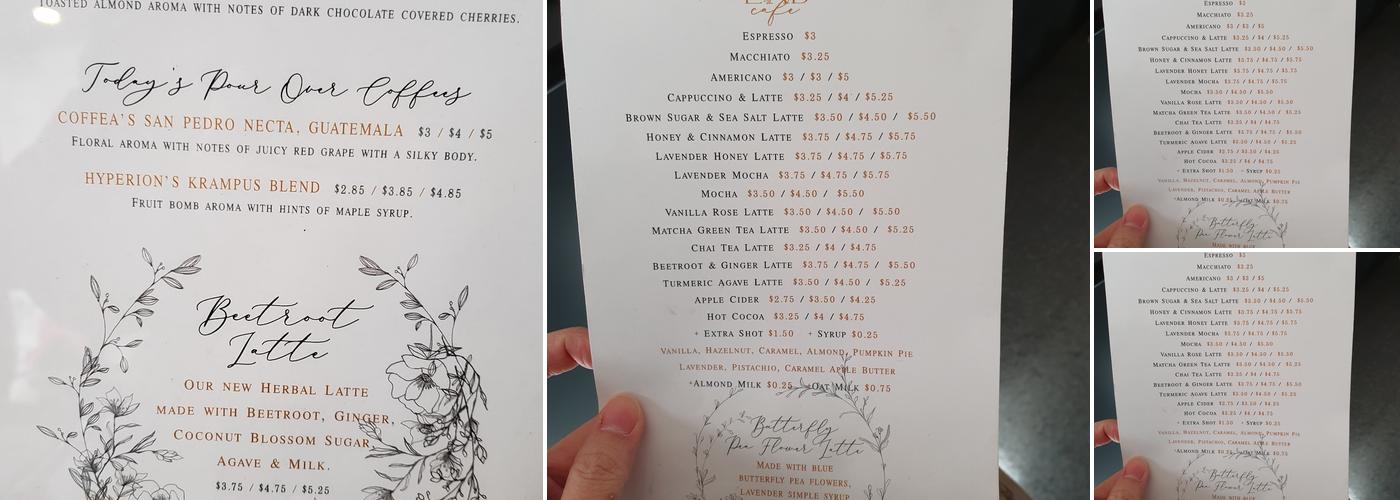 TOASTED ALMOND AROMA WITH NOTES OF DARK CHOCOLATE COVERED CHERRIES.
Today's Pour Over Coffees
COFFEA'S SAN PEDRO NECTA, GUATEMALA $3 / $4 / $5
FLORAL AROMA WITH NOTES OF JUICY RED GRAPE WITH A SILKY BODY.
HYPERION'S KRAMPUS BLEND $2.85 / $3.85 / $4.85
FRUIT BOMB AROMA WITH HINTS OF MAPLE SYRUP.
Beetroot
Latte
OUR NEW HERBAL LATTE
MADE WITH BEETROOT, GINGER,
COCONUT BLOSSOM SUGAR,
AGAVE & MILK.
$3.75 / $4.75 / $5.25
cafe
ESPRESSO $3
MACCHIATO $3.25
AMERICANO $3 / $3 / $5
CAPPUCCINO & LATTE $3.25 / $4 / $5.25
BROWN SUGAR & SEA SALT LATTE $3.50 / $4.50 / $5.50
HONEY & CINNAMON LATTE $3.75 / $4.75 / $5.75
LAVENDER HONEY LATTE $3.75 / $4.75 / $5.75
LAVENDER MOCHA $3.75 / $4.75 / $5.75
MOCHA $3.50 / $4.50 / $5.50
VANILLA ROSE LATTE $3.50 / $4.50 / $5.50
MATCHA GREEN TEA LATTE $3.50 / $4.50 / $5.25
CHAI TEA LATTE $3.25 / $4 / $4.75
BEETROOT & GINGER LATTE $3.75 / $4.75 / $5.50
TURMERIC AGAVE LATTE $3.50 / $4.50 / $5.25
APPLE CIDER $2.75 / $3.50 / $4.25
HOT COCOA $3.25 / $4 / $4.75
+ EXTRA SHOT $1.50 + SYRUP $0.25
VANILLA, HAZELNUT, CARAMEL, ALMOND, PUMPKIN PIE
LAVENDER, PISTACHIO, CARAMEL APPLE BUTTER
+ALMOND MILK $0.25 +OAT MILK $0.75
Butterfly
Pea Flower Latte
MADE WITH BLUE
BUTTERFLY PEA FLOWERS,
LAVENDER SIMPLE SYRUP
ESPRESSO $3
MACCHIATO $3.25
AMERICANO $3 / $3 / $5
CAPPUCCINO & LATTE $3.25 / $4 / $5.25
BROWN SUGAR & SEA SALT LATTE $3.50 / $4.50 / $5.50
HONEY & CINNAMON LATTE $3.75 / $4.75 / $5.75
LAVENDER HONEY LATTE $3.75 / $4.75 / $5.75
LAVENDER MOCHA $3.75 / $4.75 / $5.75
MOCHA $3.50 / $4.50 / $5.50
VANILLA ROSE LATTE $3.50 / $4.50 / $5.50
MATCHA GREEN TEA LATTE $3.50 / $4.50 / $5.25
CHAI TEA LATTE $3.25 / $4 / $4.75
BEETROOT & GINGER LATTE $3.75 / $4.75 / $5.50
TURMERIC AGAVE LATTE $3.50 / $4.50 / $5.25
APPLE CIDER $2.75 / $3.50 / $4.25
HOT COCOA $3.25 / $4 / $4.75
+ EXTRA SHOT $1.50 + SYRUP $0.25
VANILLA, HAZELNUT, CARAMEL, ALMOND, PUMPKIN PIE
LAVENDER, PISTACHIO, CARAMEL APPLE BUTTER
+ALMOND MILK $0.25 +OAT MILK $0.75
Butterfly
Pea Flower Latte
MADE WITH BLUE
ESPRESSO $3
MACCHIATO $3.25
AMERICANO $3 / $3 / $5
CAPPUCCINO & LATTE $3.25 / $4 / $5.25
BROWN SUGAR & SEA SALT LATTE $3.50 / $4.50 / $5.50
HONEY & CINNAMON LATTE $3.75 / $4.75 / $5.75
LAVENDER HONEY LATTE $3.75 / $4.75 / $5.75
LAVENDER MOCHA $3.75 / $4.75 / $5.75
MOCHA $3.50 / $4.50 / $5.50
VANILLA ROSE LATTE $3.50 / $4.50 / $5.50
MATCHA GREEN TEA LATTE $3.50 / $4.50 / $5.25
CHAI TEA LATTE $3.25 / $4 / $4.75
BEETROOT & GINGER LATTE $3.75 / $4.75 / $5.50
TURMERIC AGAVE LATTE $3.50 / $4.50 / $5.25
APPLE CIDER $2.75 / $3.50 / $4.25
HOT COCOA $3.25 / $4 / $4.75
+ EXTRA SHOT $1.50 + SYRUP $0.25
VANILLA, HAZELNUT, CARAMEL, ALMOND, PUMPKIN PIE
LAVENDER, PISTACHIO, CARAMEL APPLE BUTTER
+ALMOND MILK $0.25 +OAT MILK $0.75
Butterfly
Pea Flower Latte